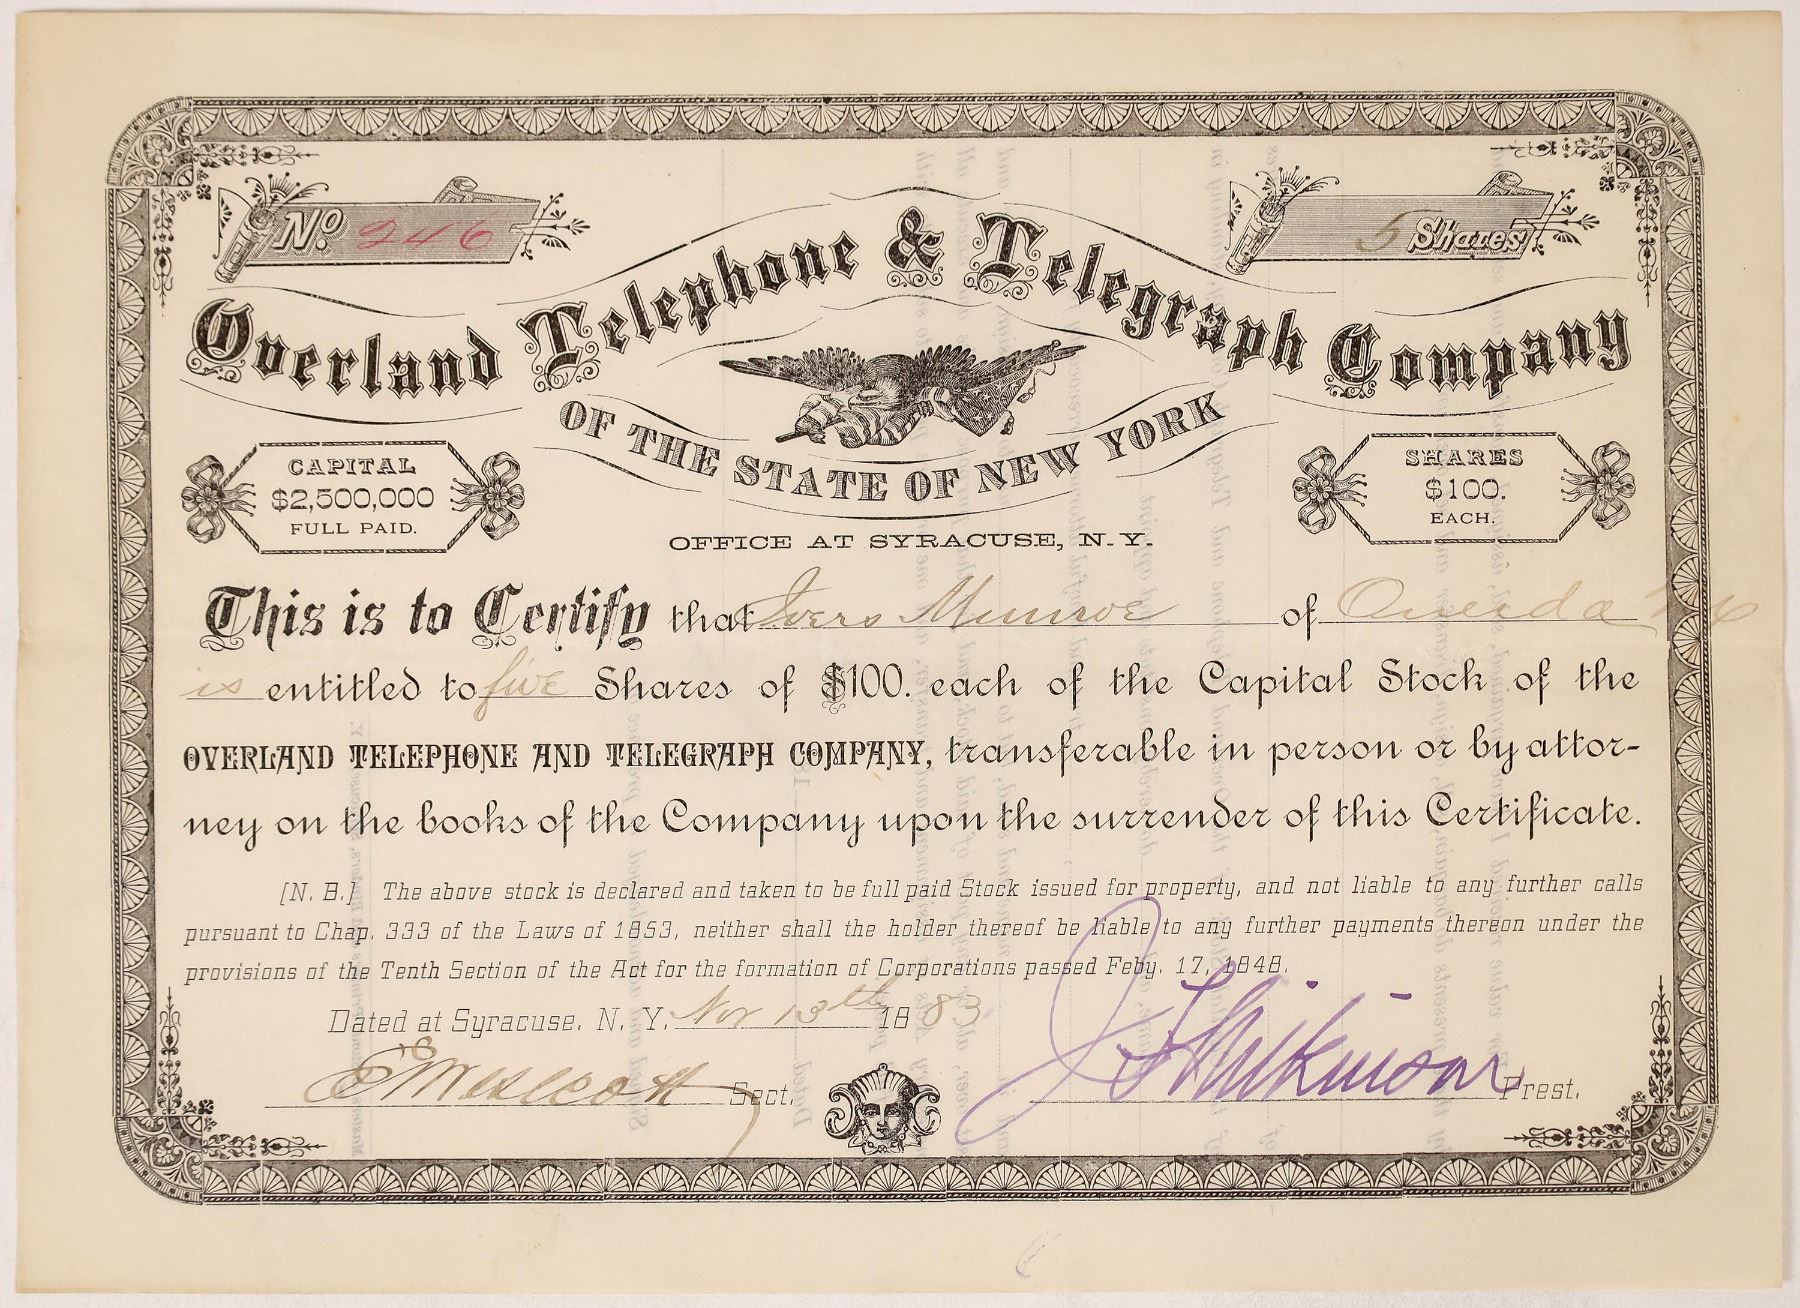 No. 246
5 Shares
Overland Telephone & Telegraph Company
OF THE STATE OF NEW YORK
CAPITAL
$2,500,000
FULL PAID.
SHARES
$100.
EACH.
OFFICE AT SYRACUSE, N.Y.
This is to Certify that Ivers Munroe of Oneida NY
is entitled to five Shares of $100. each of the Capital Stock of the
OVERLAND TELEPHONE AND TELEGRAPH COMPANY, transferable in person or by attor-
ney on the books of the Company upon the surrender of this Certificate.
[N. B.] The above stock is declared and taken to be full paid Stock issued for property, and not liable to any further calls
pursuant to Chap. 333 of the Laws of 1853, neither shall the holder thereof be liable to any further payments thereon under the
provisions of the Tenth Section of the Act for the formation of Corporations passed Feby. 17, 1848.
Dated at Syracuse, N. Y. Nov 13th 1883
E Wescott Sect.
J Wilkinson Prest.